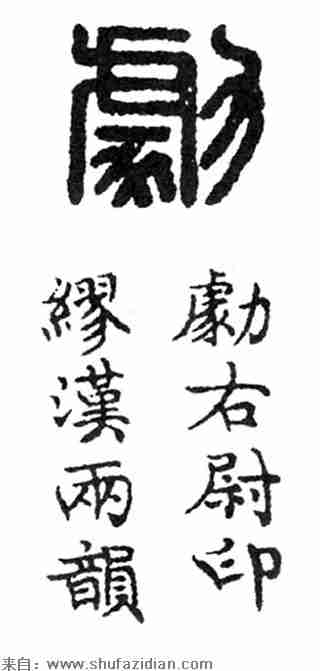 勮
勮右尉印
繆漢兩韻
来自：www.shufazidian.com